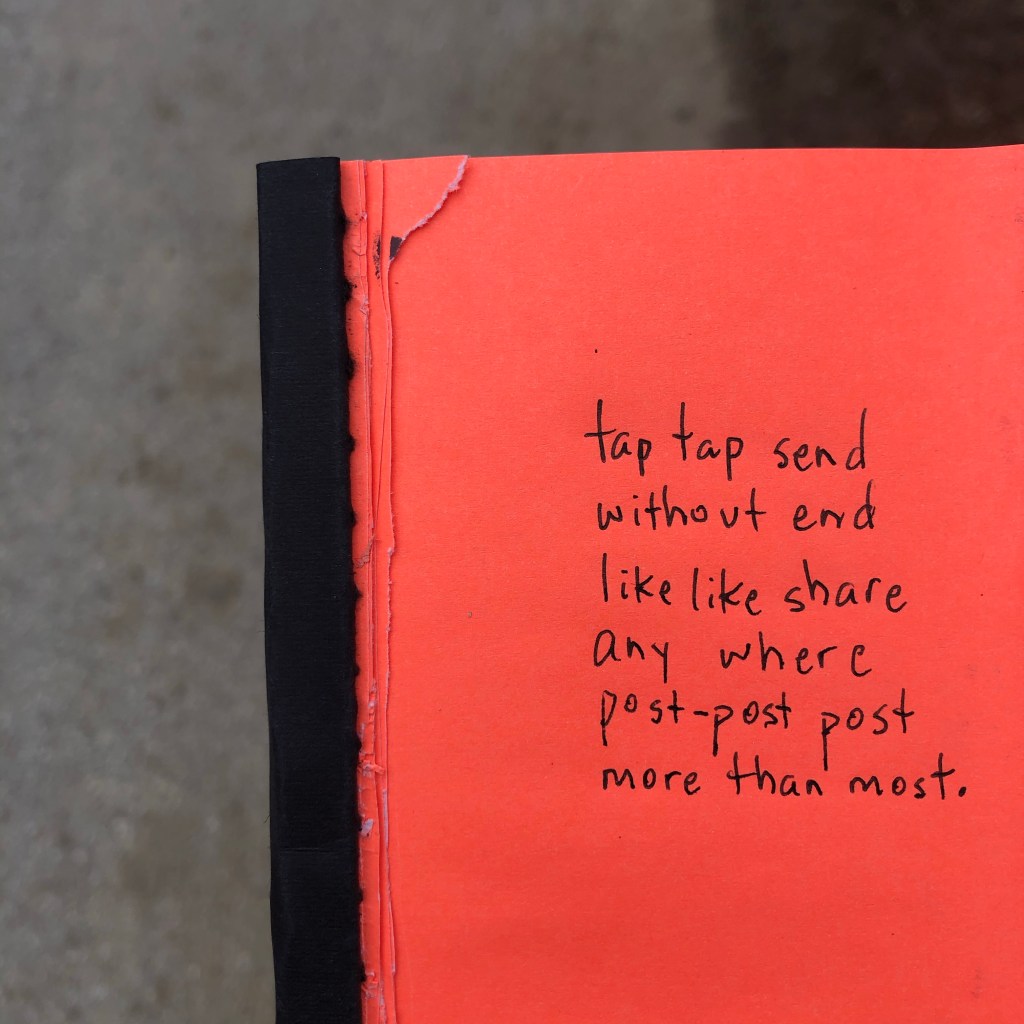 tap tap send
without end
like like share
any where
post-post post
more than most.